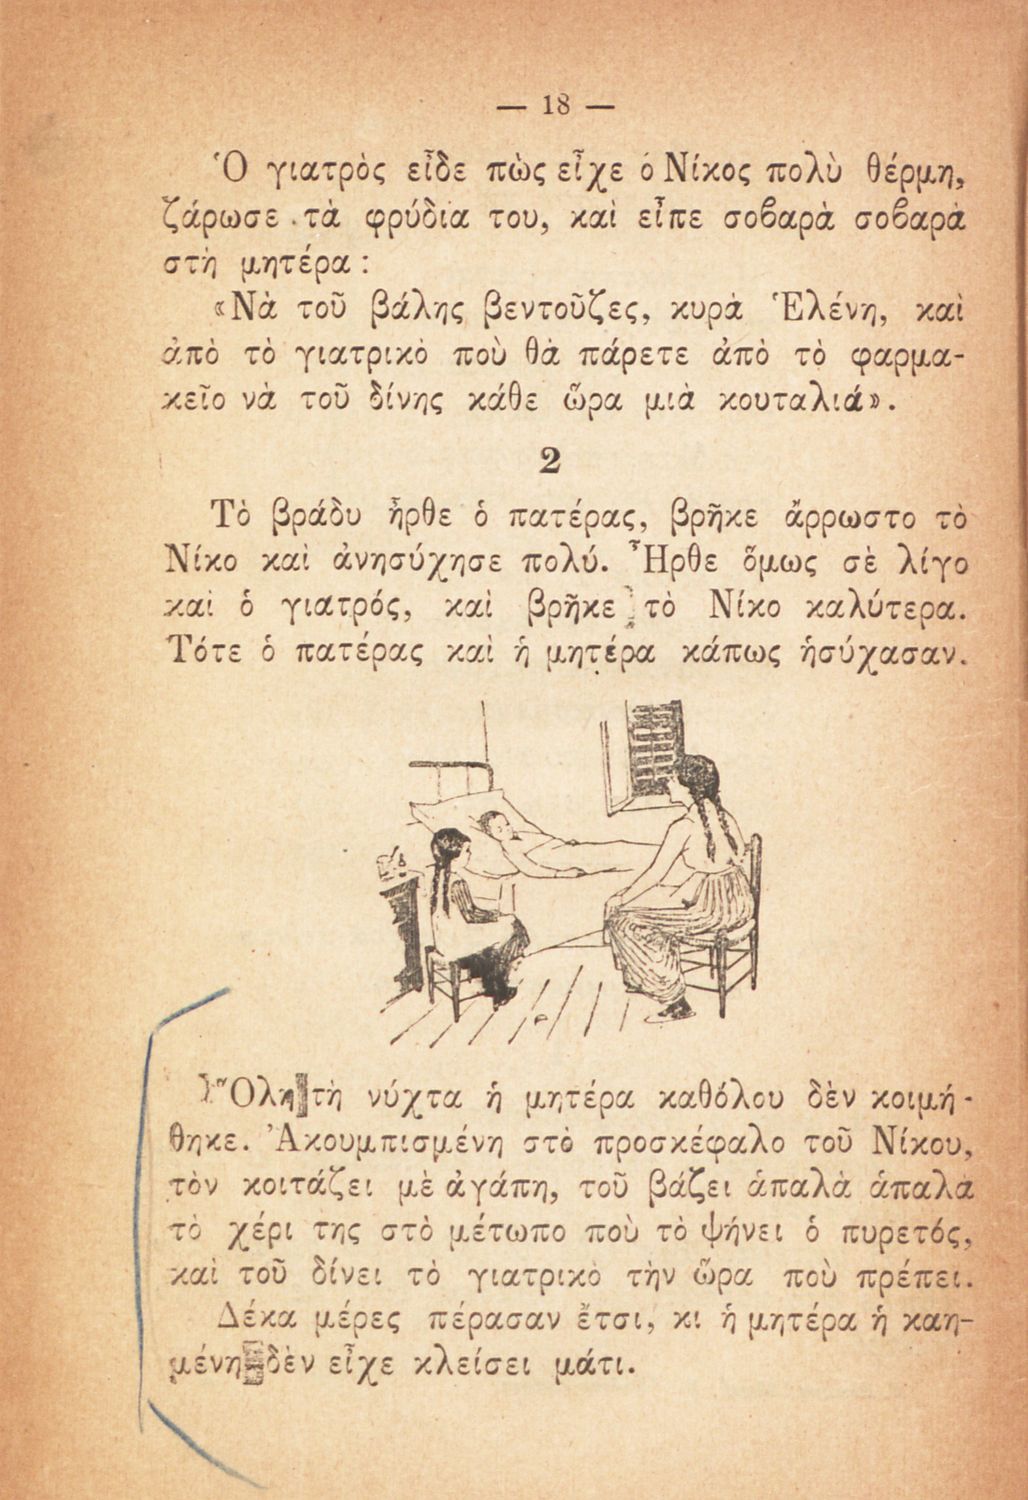 — 18 —
Ὁ γιατρὸς εἶδε πὼς εἶχε ὁ Νίκος πολὺ θέρμη,
ζάρωσε τὰ φρύδια του, καὶ εἶπε σοβαρὰ σοβαρὰ
στὴ μητέρα :
«Νὰ τοῦ βάλης βεντοῦζες, κυρὰ Ἑλένη, καὶ
ἀπὸ τὸ γιατρικὸ ποὺ θὰ πάρετε ἀπὸ τὸ φαρμα-
κεῖο νὰ τοῦ δίνης κάθε ὥρα μιὰ κουταλιά».
2
Τὸ βράδυ ἦρθε ὁ πατέρας, βρῆκε ἄρρωστο τὸ
Νίκο καὶ ἀνησύχησε πολύ. Ἦρθε ὅμως σὲ λίγο
καὶ ὁ γιατρός, καὶ βρῆκε τὸ Νίκο καλύτερα.
Τότε ὁ πατέρας καὶ ἡ μητέρα κάπως ἡσύχασαν.
Ὅλη τὴ νύχτα ἡ μητέρα καθόλου δὲν κοιμή-
θηκε. Ἀκουμπισμένη στὸ προσκέφαλο τοῦ Νίκου,
τὸν κοιτάζει μὲ ἀγάπη, τοῦ βάζει ἁπαλὰ ἁπαλὰ
τὸ χέρι της στὸ μέτωπο ποὺ τὸ ψήνει ὁ πυρετός,
καὶ τοῦ δίνει τὸ γιατρικὸ τὴν ὥρα ποὺ πρέπει.
Δέκα μέρες πέρασαν ἔτσι, κι ἡ μητέρα ἡ καη-
μένη δὲν εἶχε κλείσει μάτι.